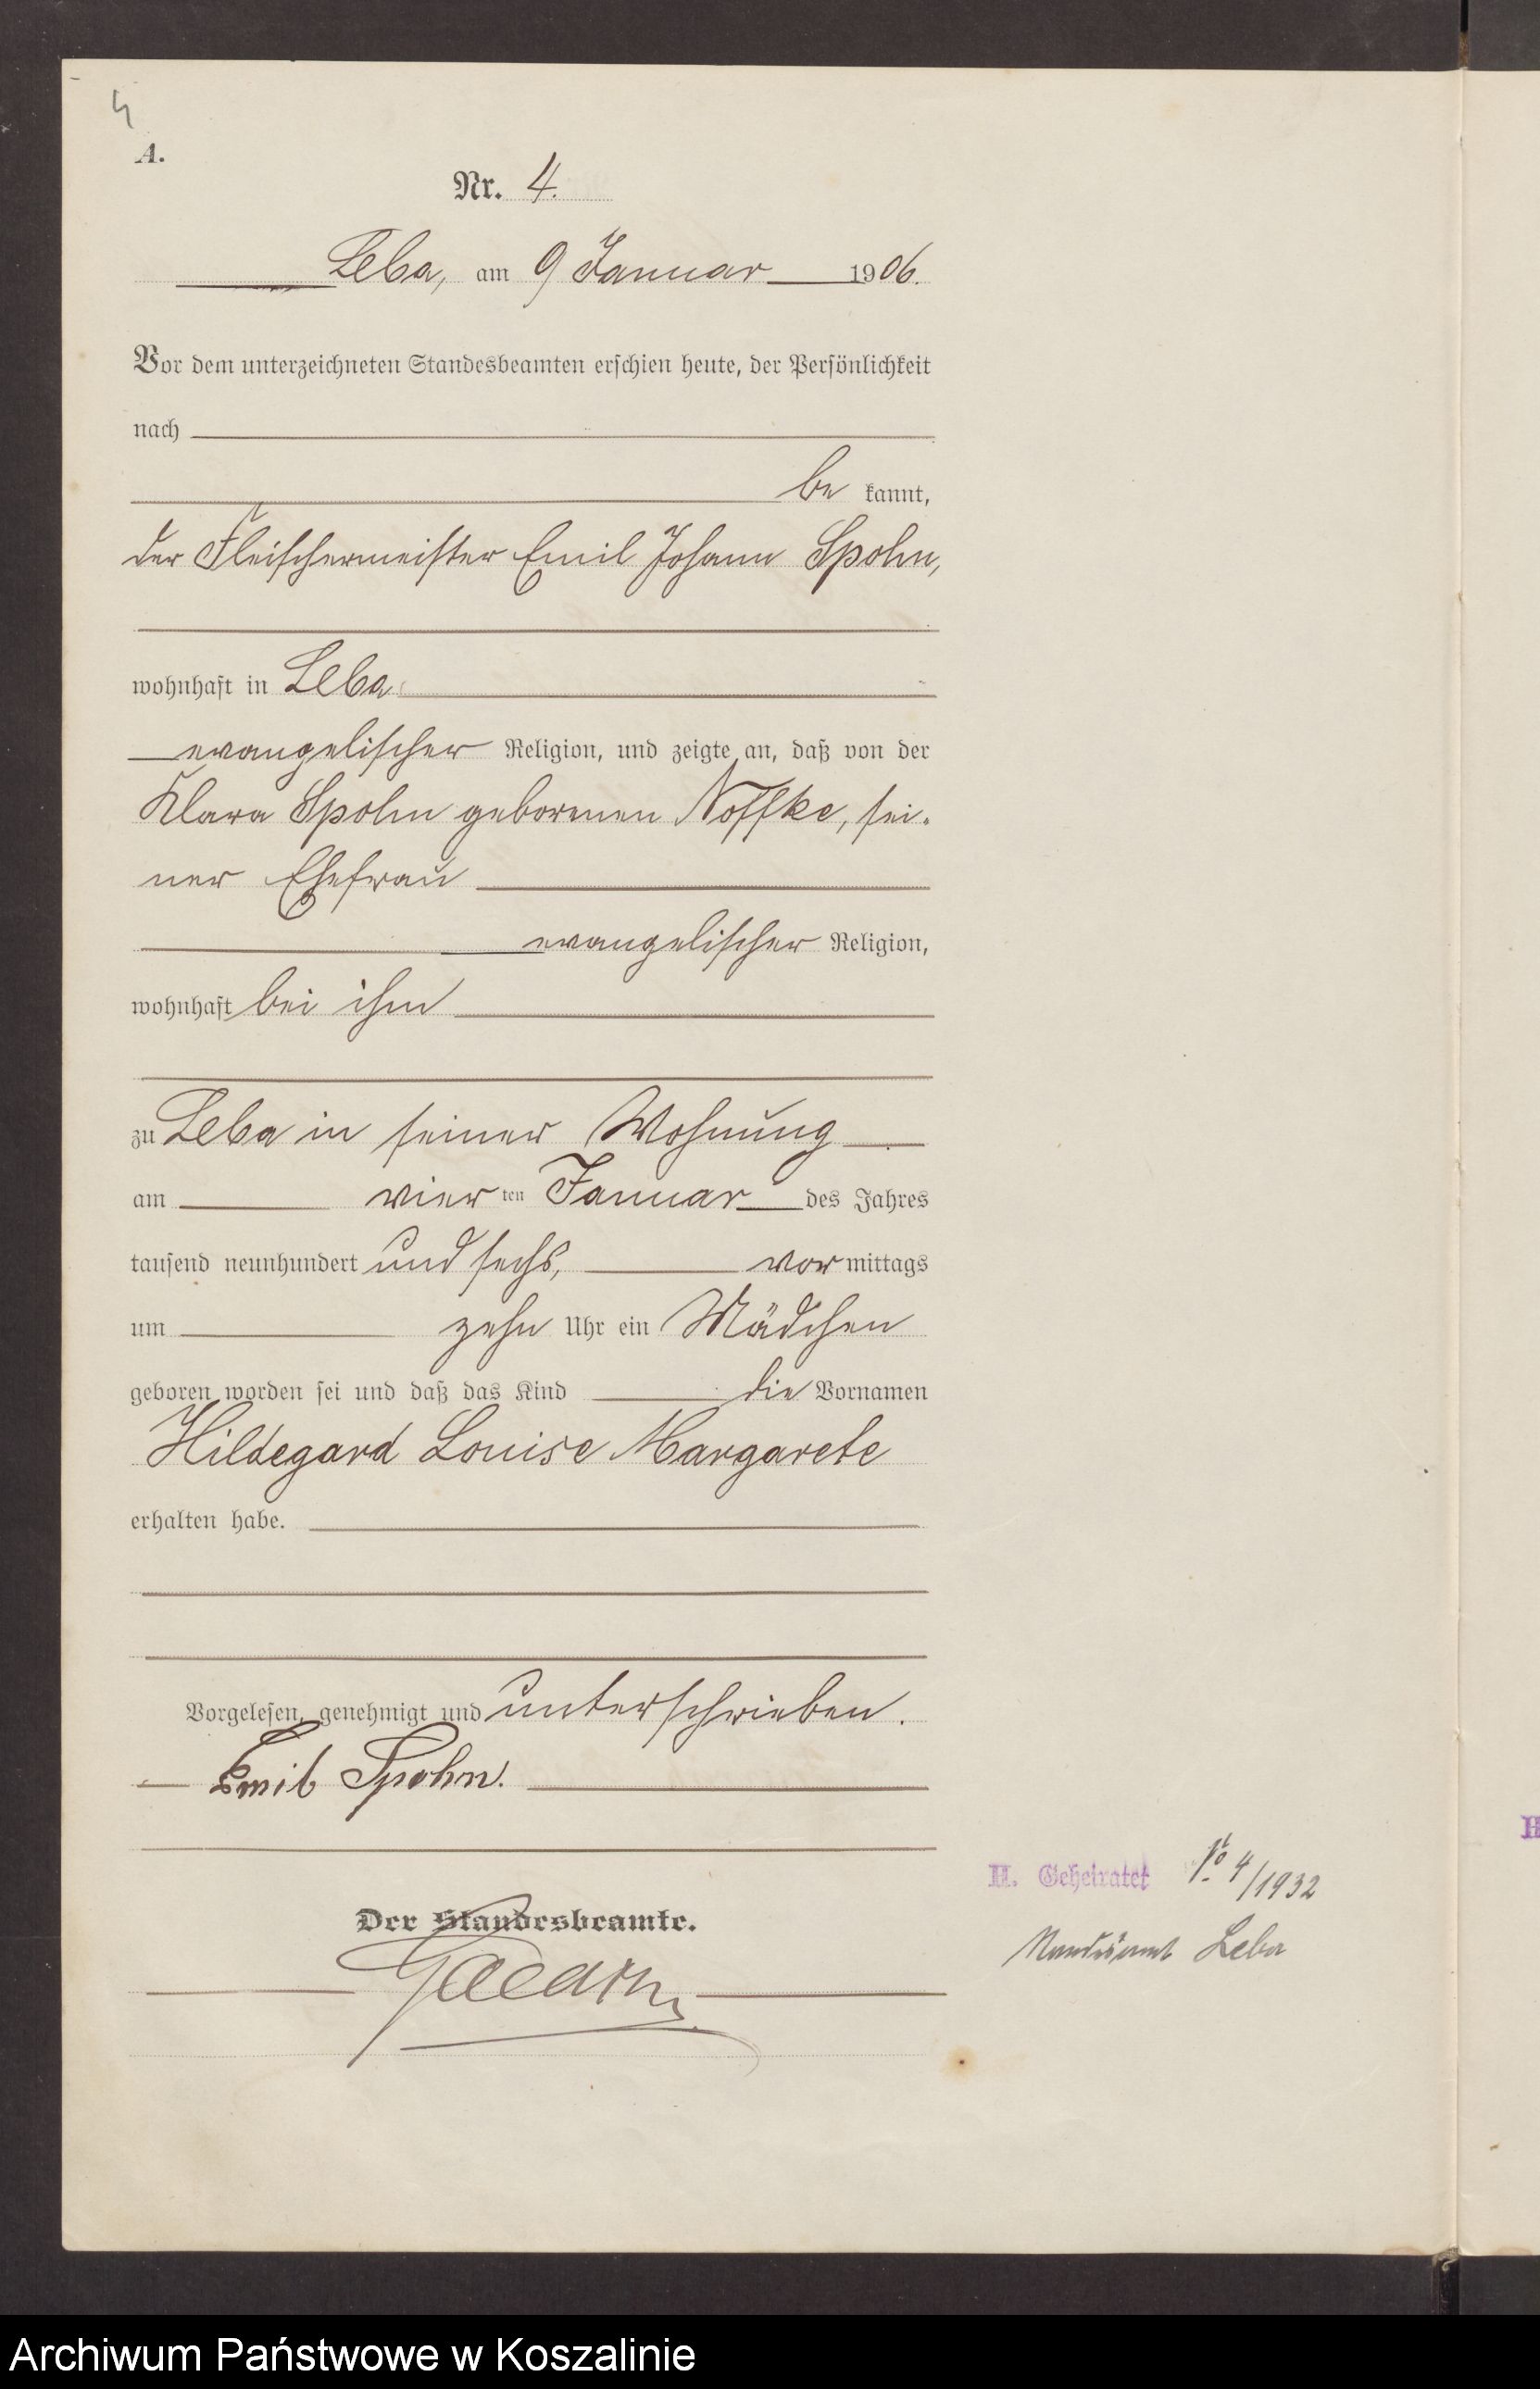 4
A.
Nr. 4.
Leba, am 9 Januar 1906.
Vor dem unterzeichneten Standesbeamten erschien heute, der Persönlichkeit
nach
be kannt,
der Fleischermeister Emil Johann Spohn,
wohnhaft in Leba
evangelischer Religion, und zeigte an, daß von der
Klara Spohn geborenen Noffke, sei-
ner Ehefrau
evangelischer Religion,
wohnhaft bei ihm
zu Leba in seiner Wohnung
am vier ten Januar des Jahres
tausend neunhundert und sechs, vor mittags
um zehn Uhr ein Mädchen
geboren worden sei und daß das Kind die Vornamen
Hildegard Louise Margarete
erhalten habe.
Vorgelesen, genehmigt und unterschrieben.
Emil Spohn.
II. Geheiratet No 4/1932
Standesamt Leba
Der Standesbeamte.
Archiwum Państwowe w Koszalinie